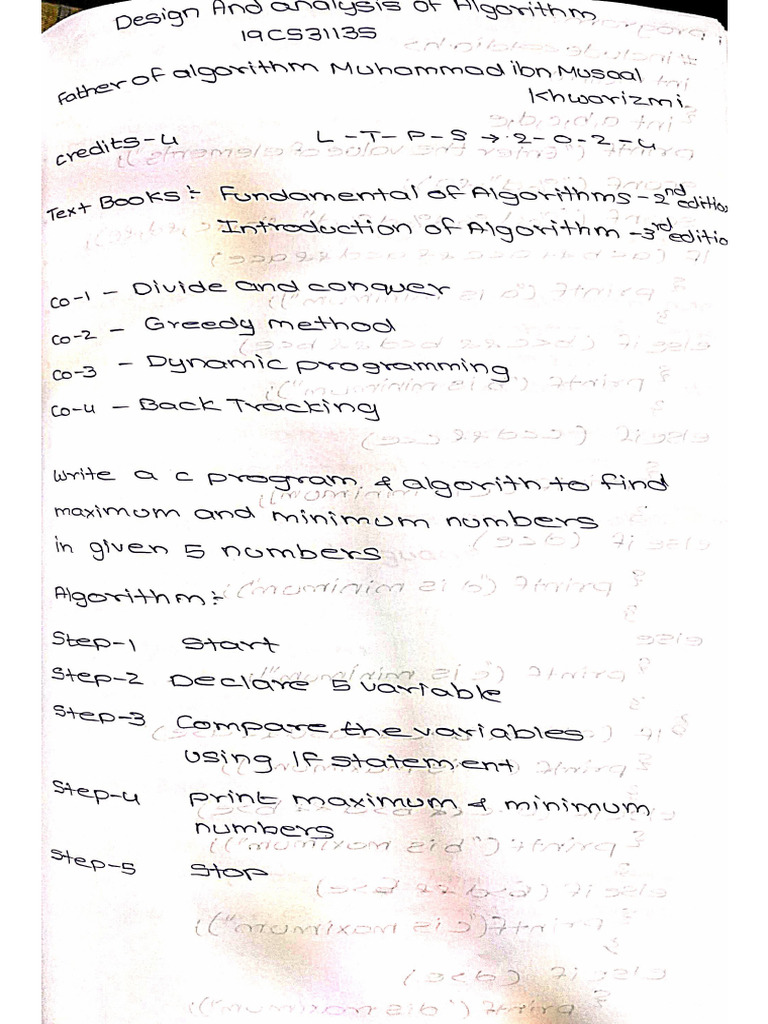 Design And analysis of Algorithm
19CS3113S
Father of algorithm Muhammad ibn Musaal
Khwarizmi.
credits-4 L-T-P-S → 2-0-2-4
Text Books:- Fundamental of Algorithms - 2nd editio
Introduction of Algorithm - 3rd editio
CO-1 - Divide and conquer
CO-2 - Greedy method
CO-3 - Dynamic programming
CO-4 - Back Tracking
write a c program & algorith to find
maximum and minimum numbers
in given 5 numbers
Algorithm:-
Step-1 Start
Step-2 Declare 5 variable
Step-3 Compare the variables
using If statement
Step-4 print maximum & minimum
numbers
Step-5 Stop